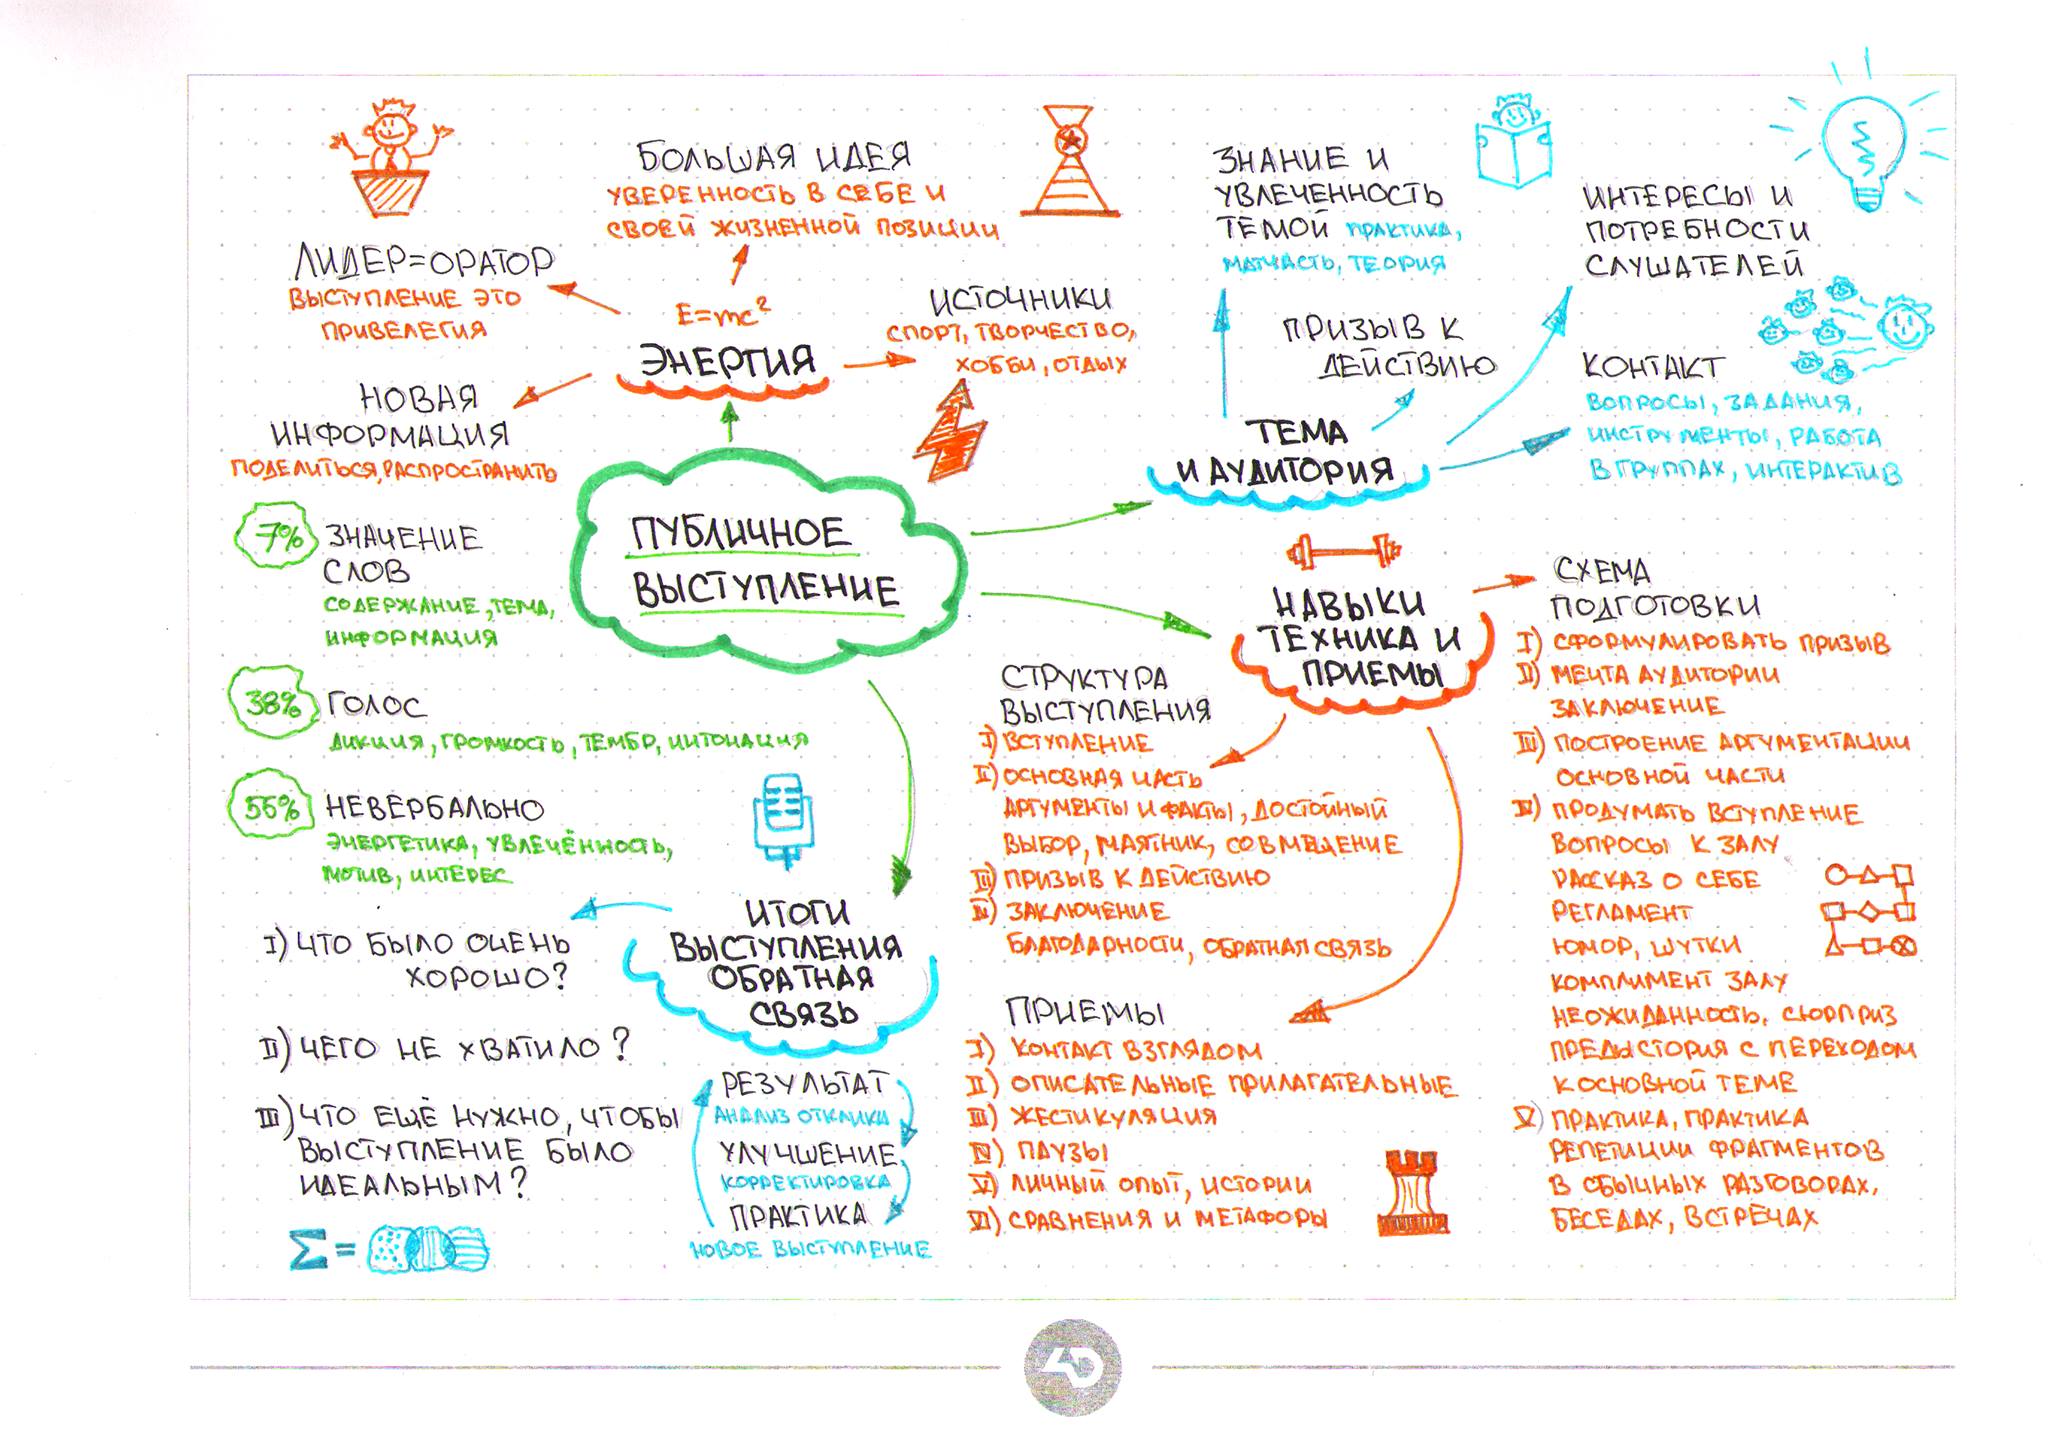 ПУБЛИЧНОЕ
ВЫСТУПЛЕНИЕ
E=mc²
ЭНЕРГИЯ
БОЛЬШАЯ ИДЕЯ
УВЕРЕННОСТЬ В СЕБЕ И
СВОЕЙ ЖИЗНЕННОЙ ПОЗИЦИИ
ЛИДЕР=ОРАТОР
ВЫСТУПЛЕНИЕ ЭТО
ПРИВЕЛЕГИЯ
НОВАЯ
ИНФОРМАЦИЯ
ПОДЕЛИТЬСЯ, РАСПРОСТРАНИТЬ
ИСТОЧНИКИ
СПОРТ, ТВОРЧЕСТВО,
ХОББИ, ОТДЫХ
ТЕМА
И АУДИТОРИЯ
ЗНАНИЕ И
УВЛЕЧЕННОСТЬ
ТЕМОЙ ПРАКТИКА,
МАТЧАСТЬ, ТЕОРИЯ
ПРИЗЫВ К
ДЕЙСТВИЮ
ИНТЕРЕСЫ И
ПОТРЕБНОСТИ
СЛУШАТЕЛЕЙ
КОНТАКТ
ВОПРОСЫ, ЗАДАНИЯ,
ИНСТРУМЕНТЫ, РАБОТА
В ГРУППАХ, ИНТЕРАКТИВ
7% ЗНАЧЕНИЕ
СЛОВ
СОДЕРЖАНИЕ, ТЕМА,
ИНФОРМАЦИЯ
38% ГОЛОС
ДИКЦИЯ, ГРОМКОСТЬ, ТЕМБР, ИНТОНАЦИЯ
55% НЕВЕРБАЛЬНО
ЭНЕРГЕТИКА, УВЛЕЧЁННОСТЬ,
МОТИВ, ИНТЕРЕС
НАВЫКИ
ТЕХНИКА И
ПРИЕМЫ
СТРУКТУРА
ВЫСТУПЛЕНИЯ
I) ВСТУПЛЕНИЕ
II) ОСНОВНАЯ ЧАСТЬ
АРГУМЕНТЫ И ФАКТЫ, ДОСТОЙНЫЙ
ВЫБОР, МАЯТНИК, СОВМЕЩЕНИЕ
III) ПРИЗЫВ К ДЕЙСТВИЮ
IV) ЗАКЛЮЧЕНИЕ
БЛАГОДАРНОСТИ, ОБРАТНАЯ СВЯЗЬ
ПРИЕМЫ
I) КОНТАКТ ВЗГЛЯДОМ
II) ОПИСАТЕЛЬНЫЕ ПРИЛАГАТЕЛЬНЫЕ
III) ЖЕСТИКУЛЯЦИЯ
IV) ПАУЗЫ
V) ЛИЧНЫЙ ОПЫТ, ИСТОРИИ
VI) СРАВНЕНИЯ И МЕТАФОРЫ
СХЕМА
ПОДГОТОВКИ
I) СФОРМУЛИРОВАТЬ ПРИЗЫВ
II) МЕЧТА АУДИТОРИИ
ЗАКЛЮЧЕНИЕ
III) ПОСТРОЕНИЕ АРГУМЕНТАЦИИ
ОСНОВНОЙ ЧАСТИ
IV) ПРОДУМАТЬ ВСТУПЛЕНИЕ
ВОПРОСЫ К ЗАЛУ
РАССКАЗ О СЕБЕ
РЕГЛАМЕНТ
ЮМОР, ШУТКИ
КОМПЛИМЕНТ ЗАЛУ
НЕОЖИДАННОСТЬ, СЮРПРИЗ
ПРЕДЫСТОРИЯ С ПЕРЕХОДОМ
К ОСНОВНОЙ ТЕМЕ
V) ПРАКТИКА, ПРАКТИКА
РЕПЕТИЦИИ ФРАГМЕНТОВ
В ОБЫЧНЫХ РАЗГОВОРАХ,
БЕСЕДАХ, ВСТРЕЧАХ
ИТОГИ
ВЫСТУПЛЕНИЯ
ОБРАТНАЯ
СВЯЗЬ
I) ЧТО БЫЛО ОЧЕНЬ
ХОРОШО?
II) ЧЕГО НЕ ХВАТИЛО?
III) ЧТО ЕЩЁ НУЖНО, ЧТОБЫ
ВЫСТУПЛЕНИЕ БЫЛО
ИДЕАЛЬНЫМ?
Σ =
РЕЗУЛЬТАТ
АНАЛИЗ ОТКЛИКА
УЛУЧШЕНИЕ
КОРРЕКТИРОВКА
ПРАКТИКА
НОВОЕ ВЫСТУПЛЕНИЕ
4D